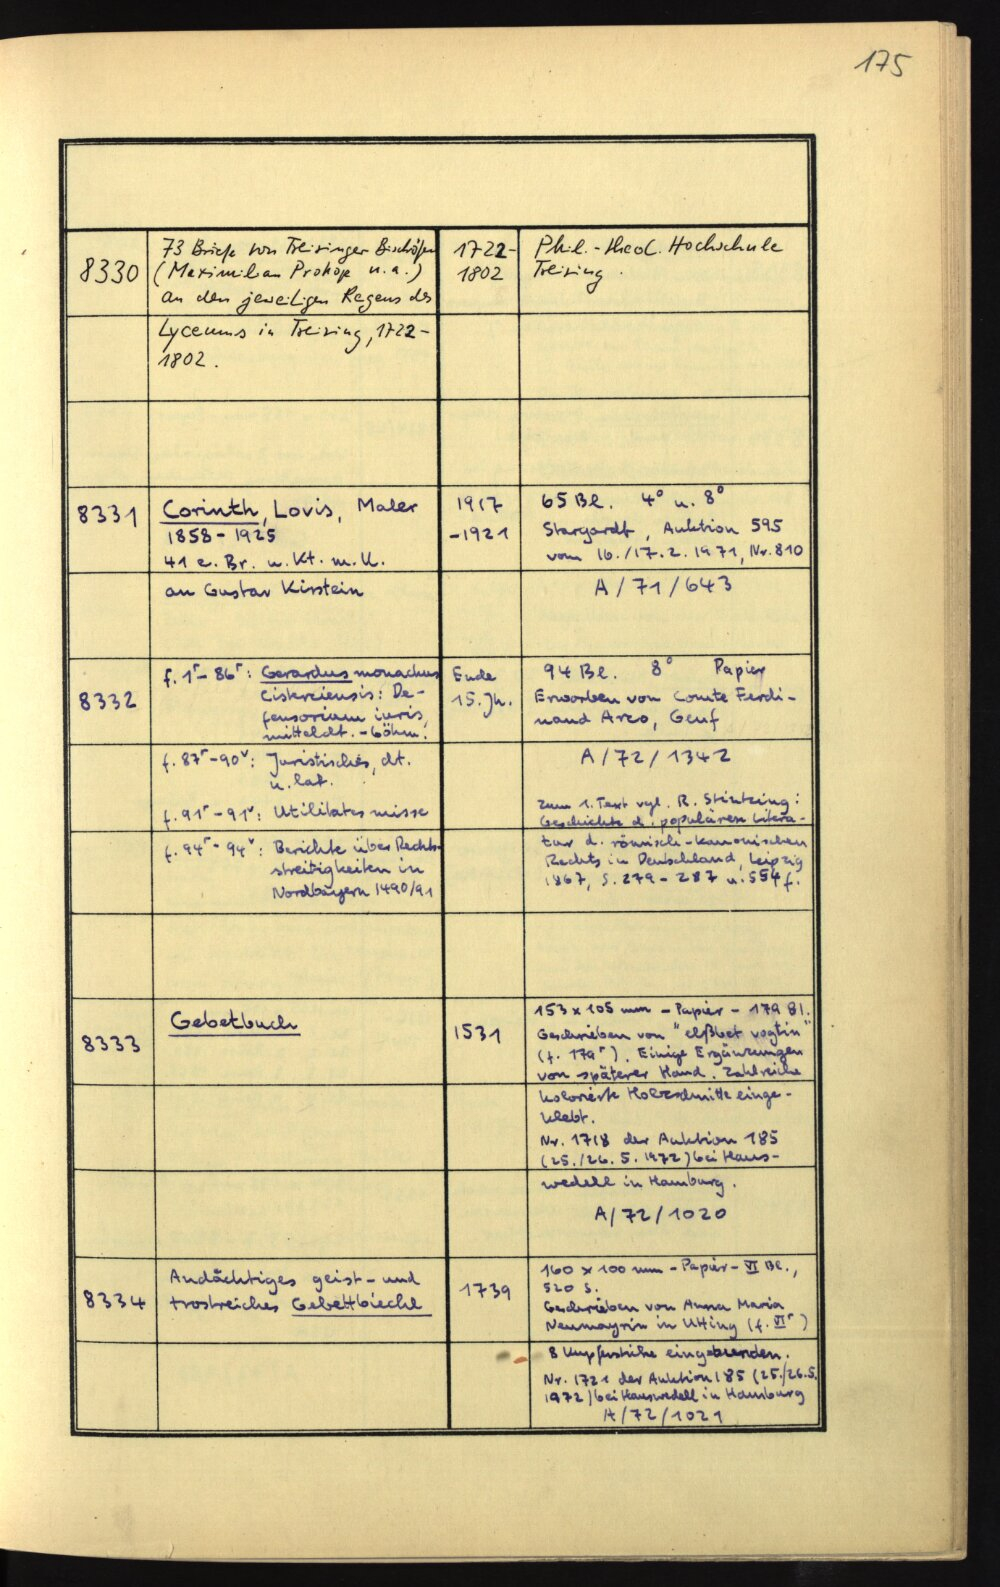 175
8330
73 Briefe von Freisinger Bischöfen
(Maximilian Prokop u.a.)
an den jeweiligen Regens des
Lyceums in Freising, 1722-
1802.
1722-
1802
Phil.-theol. Hochschule
Freising.
8331
Corinth, Lovis, Maler
1858-1925
41 e. Br. u. Kt. m. U.
an Gustav Kirstein
1917
-1921
65 Bl. 4° u. 8°
Stargardt, Auktion 595
vom 16./17.2.1971, Nr. 810
A/71/643
8332
f. 1r-86r: Gerardus monachus
Cisterciensis: De-
fensorium iuris,
mitteldt. - böhm.
f. 87r-90v: Juristisches, dt.
u. lat.
f. 91r-91v: Utilitates misse
f. 94r-94v: Berichte über Rechts-
streitigkeiten in
Nordbayern 1490/91
Ende
15. Jh.
94 Bl. 8° Papier
Erworben von Comte Ferdi-
nand Arco, Genf
A/72/1342
Zum 1. Text vgl. R. Stintzing:
Geschichte d. populären Litera-
tur d. römisch-kanonischen
Rechts in Deutschland, Leipzig
1867, S. 279-287 u. 554f.
8333
Gebetbuch
1531
153 x 105 mm - Papier - 179 Bl.
Geschrieben von "elßbet vogtin"
(f. 179r). Einige Ergänzungen
von späterer Hand. Zahlreiche
kolorierte Holzschnitte einge-
klebt.
Nr. 1718 der Auktion 185
(25./26.5.1972) bei Haus-
wedell in Hamburg.
A/72/1020
8334
Andächtiges geist- und
trostreiches Gebettbiechl
1739
160 x 100 mm - Papier - VI Bl.,
520 S.
Geschrieben von Anna Maria
Neumayrin in Utting (f. VIr)
8 Kupferstiche eingebunden.
Nr. 1721 der Auktion 185 (25./26.5.
1972) bei Hauswedell in Hamburg
A/72/1021